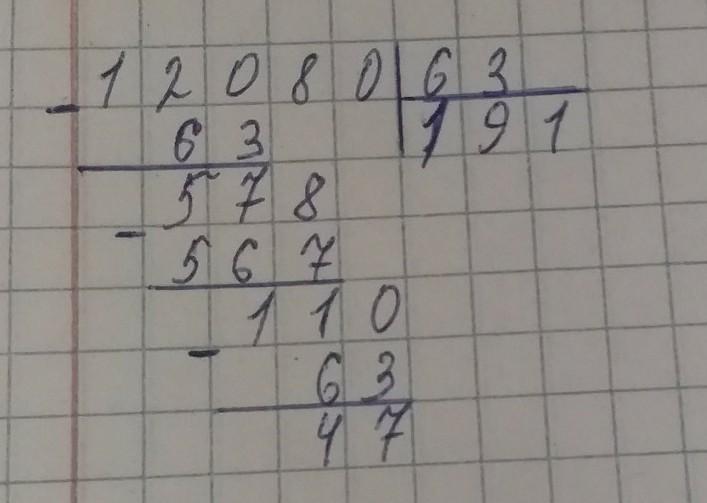 - 12080 | 63
63 | 191
578
- 567
110
- 63
47